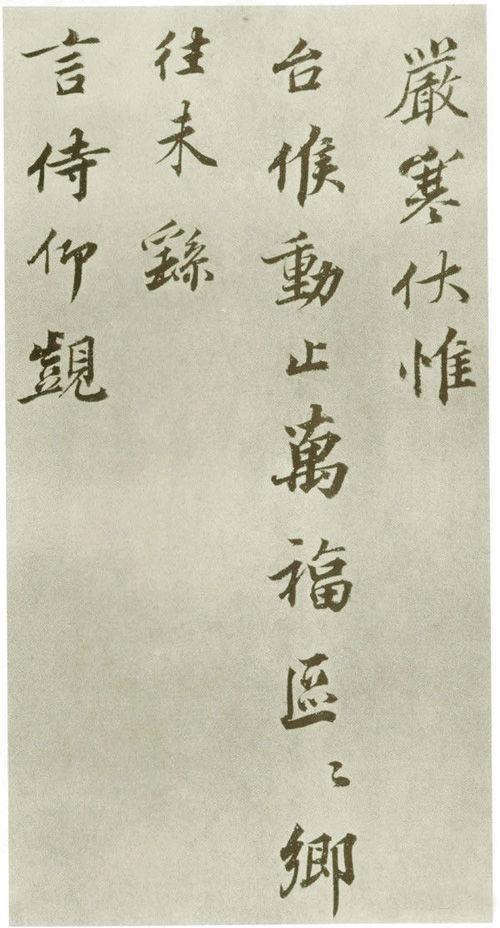 嚴寒伏惟
台候動止萬福區〻鄉
往未繇
言侍仰覬